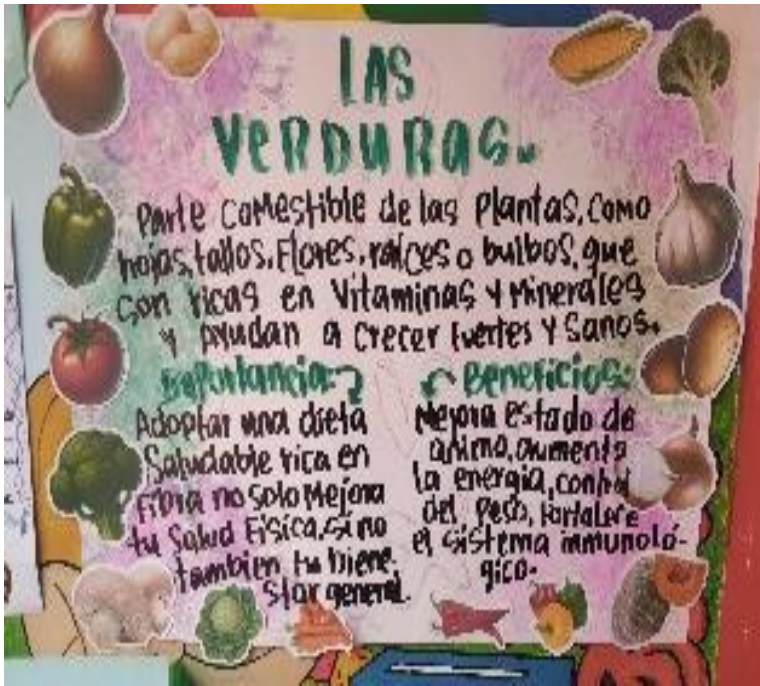 LAS
VERDURAS.
Parte comestible de las plantas, como
hojas, tallos, Flores, raíces o bulbos, que
son ricas en Vitaminas y Minerales
y ayudan a crecer fuertes y Sanos.
Importancia:
Adoptar una dieta
Saludable rica en
Fibra no solo Mejora
tu Salud Física, sino
tambien tu biene-
star general.
Beneficios:
Mejora estado de
animo, aumenta
la energia, control
del peso, fortalece
el sistema inmunoló-
gico.